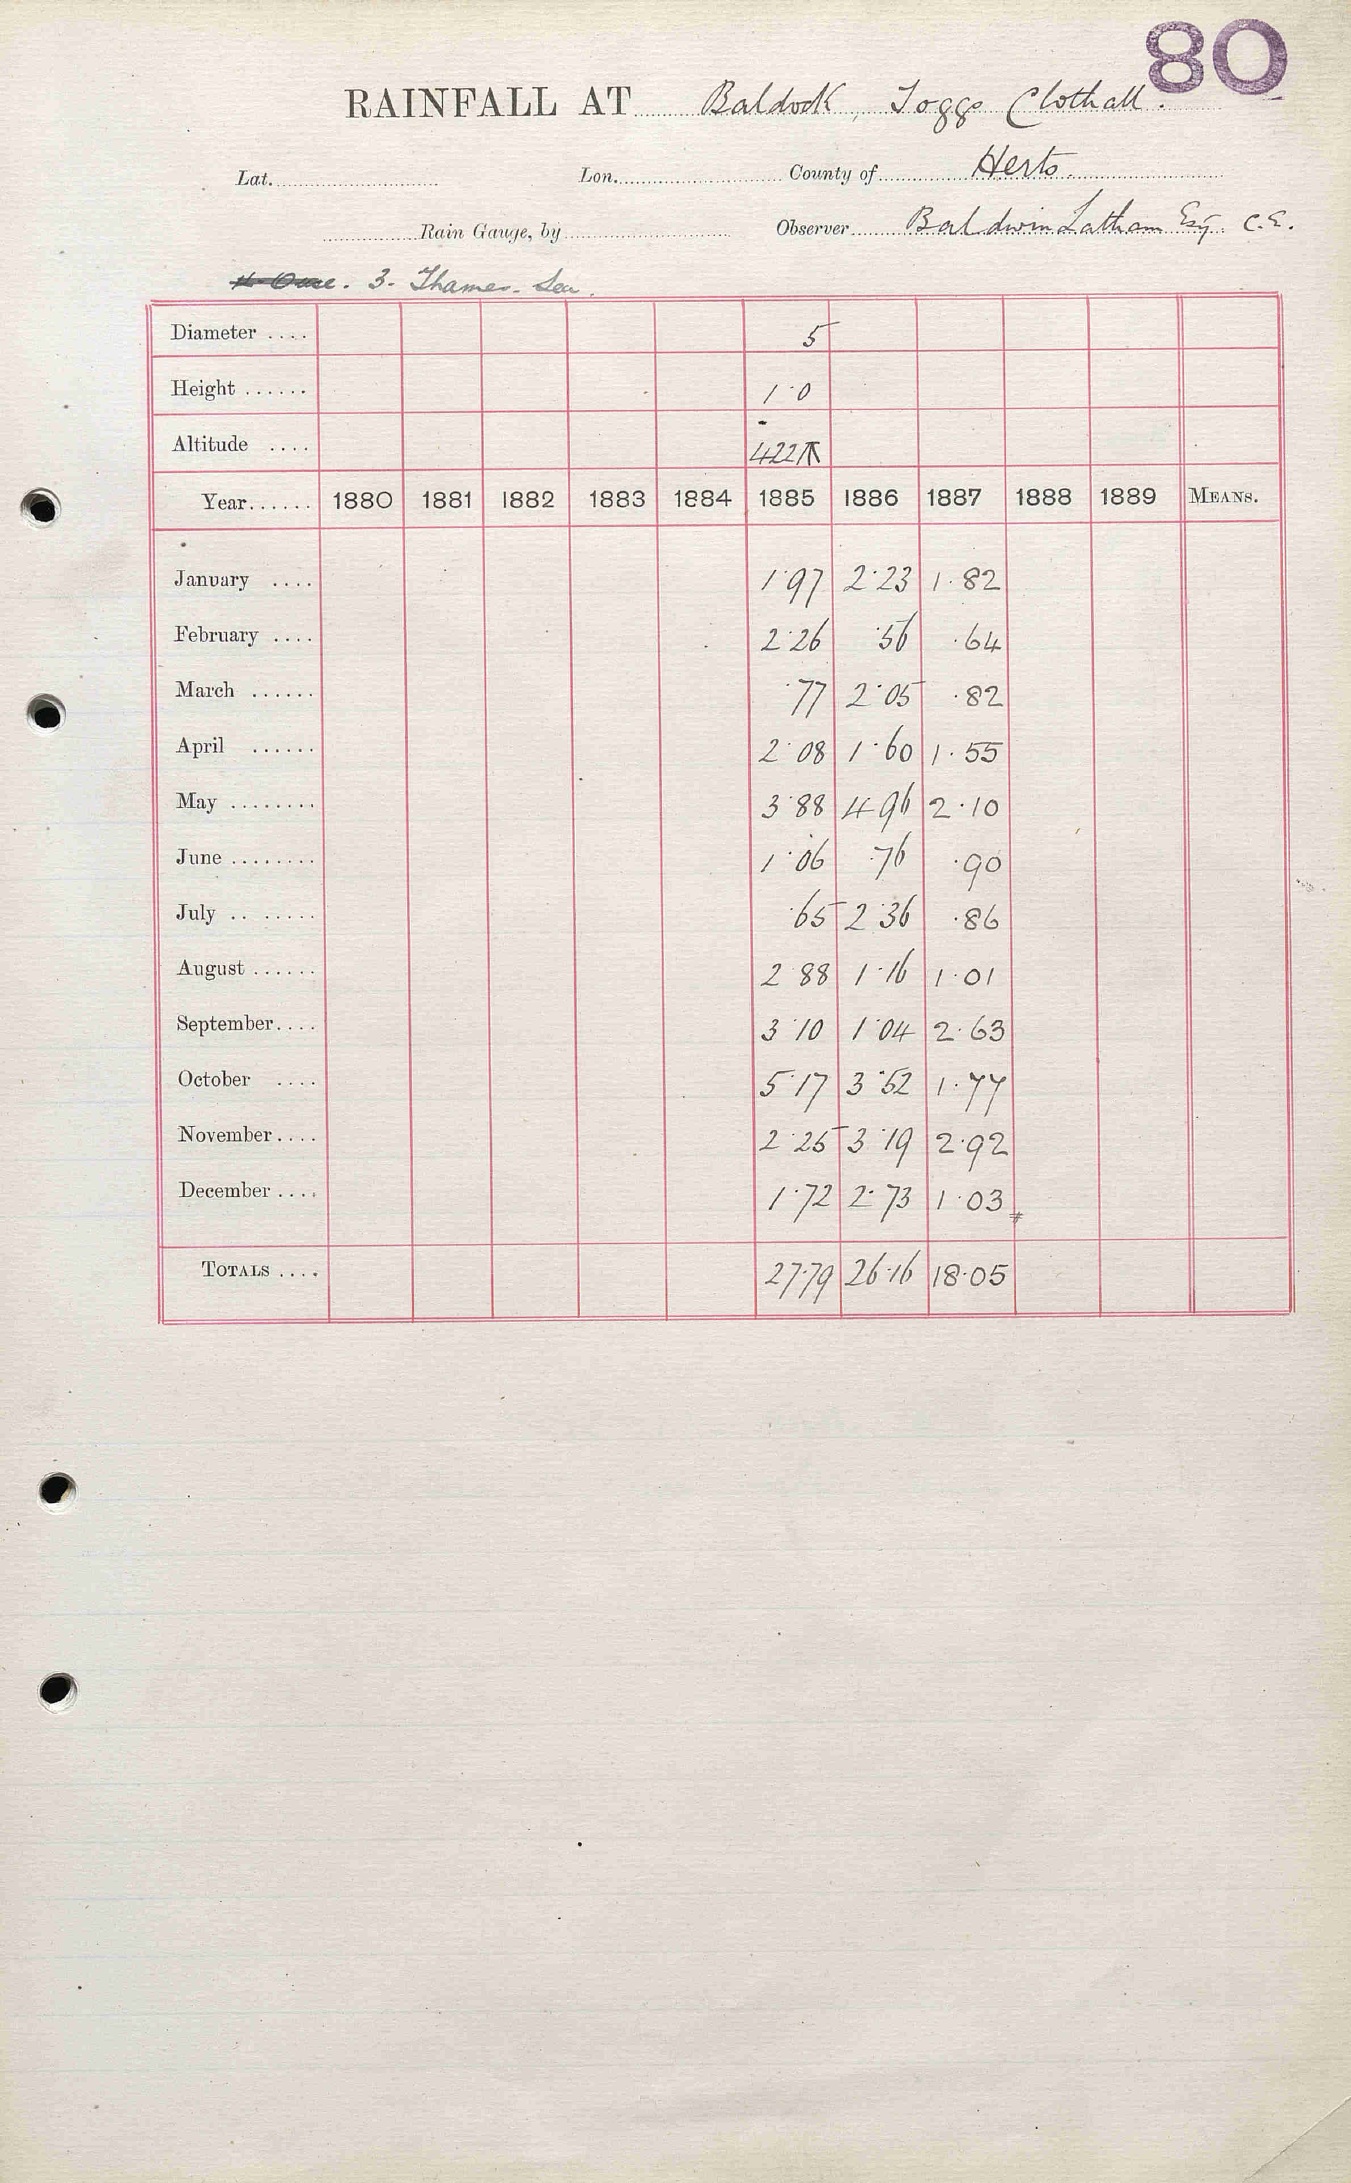 80
RAINFALL AT Baldock, Toggs Clothall.
Lat. Lon. County of Herts.
Rain Gauge, by Observer Baldwin Latham Esq. C.E.
3. Thames. Lea.
Diameter .... 5
Height ...... 1·0
Altitude .... 422
Year...... 1880 1881 1882 1883 1884 1885 1886 1887 1888 1889 MEANS.
January .... 1·97 2·23 1·82
February .... 2·26 ·56 ·64
March ...... ·77 2·05 ·82
April ...... 2·08 1·60 1·55
May ........ 3·88 4·96 2·10
June ........ 1·06 ·76 ·90
July .. ...... ·65 2·36 ·86
August ...... 2·88 1·16 1·01
September.... 3·10 1·04 2·63
October .... 5·17 3·52 1·77
November.... 2·25 3·19 2·92
December .... 1·72 2·73 1·03
TOTALS .... 27·79 26·16 18·05